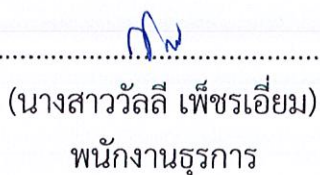 (นางสาววัลลี เพ็ชรเอี่ยม)
พนักงานธุรการ